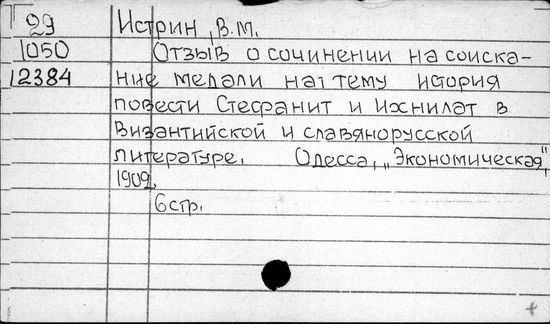 29 Истрин, В.М.
1050 Отзыв о сочинении на соиска-
12384 ние медали на 1 тему история
повести Стефанит и Ихнилат в
Византийской и славянорусской
литературе. Одесса, „Экономическая",
1909.
6 стр.